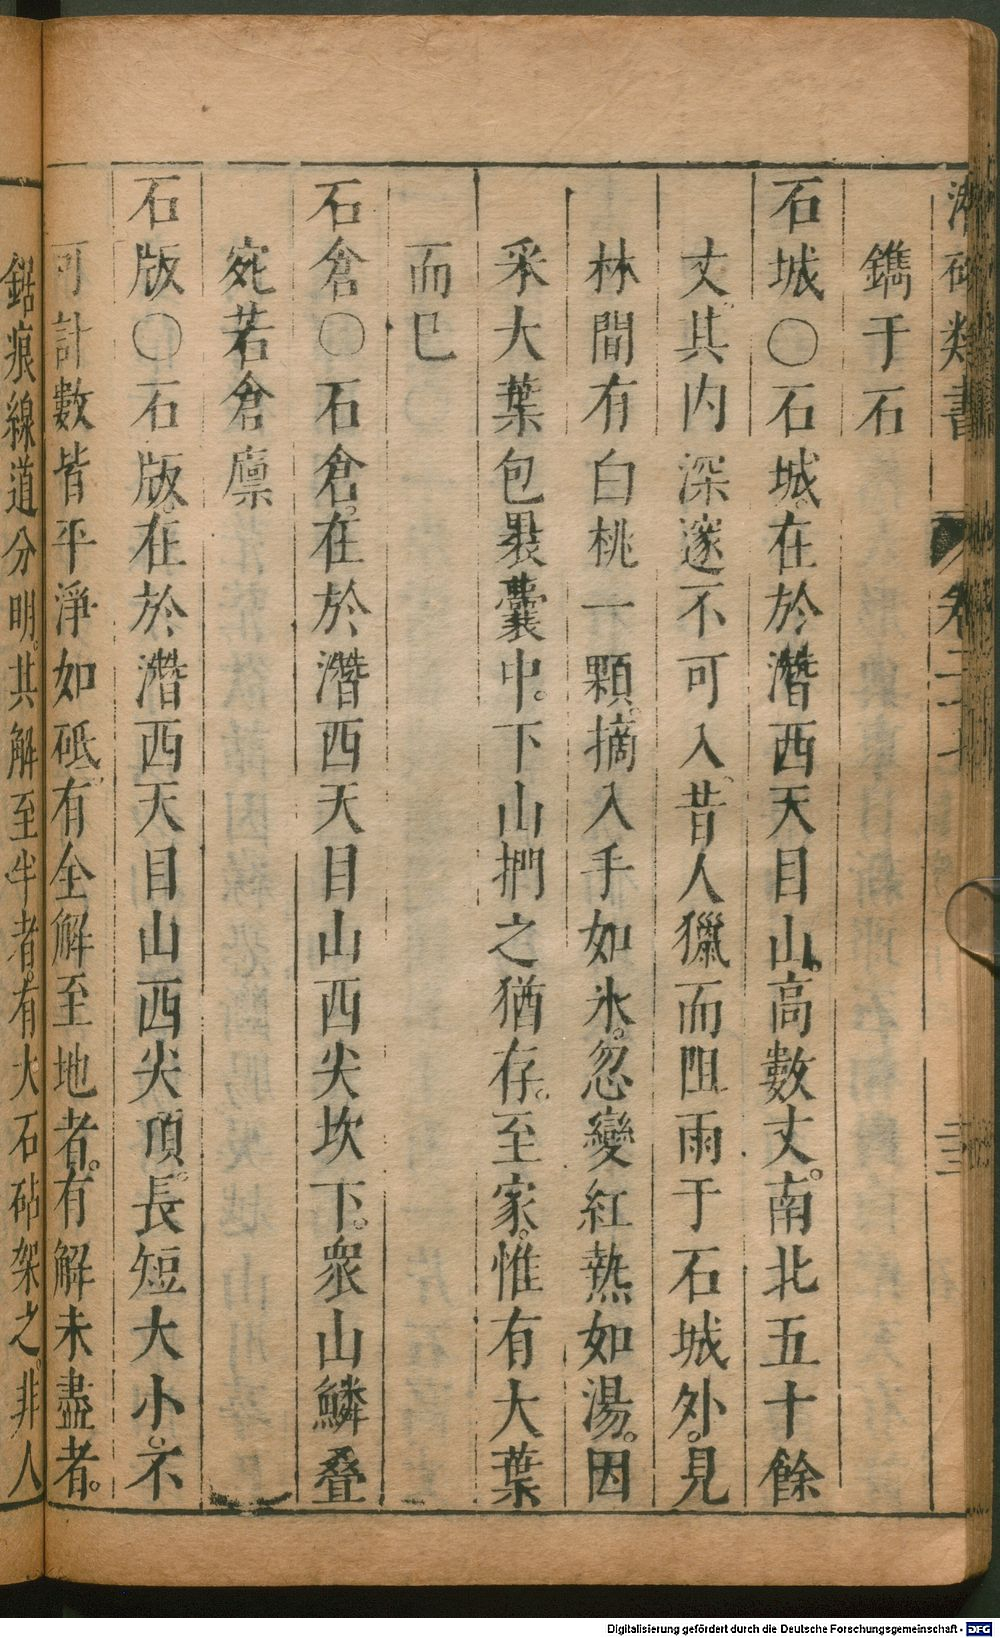 類書 卷二十七
鐫于石
石城〇石城。在於潛西天目山。高數丈。南北五十餘
丈。其内深邃不可入。昔人獵而阻雨于石城外。見
林間有白桃一顆。摘入手如氷。忽變紅熱如湯。因
采大葉包裹囊中。下山捫之猶存。至家。惟有大葉
而已
石倉〇石倉。在於潛西天目山西尖坎下。衆山鱗叠
宛若倉廪
石版〇石版。在於潛西天目山西尖頂。長短大小。不
可計數皆平淨如砥。有全解至地者。有解未盡者。
鋸痕線道分明。其解至半者。有大石砧架之。非人
Digitalisierung gefördert durch die Deutsche Forschungsgemeinschaft - DFG